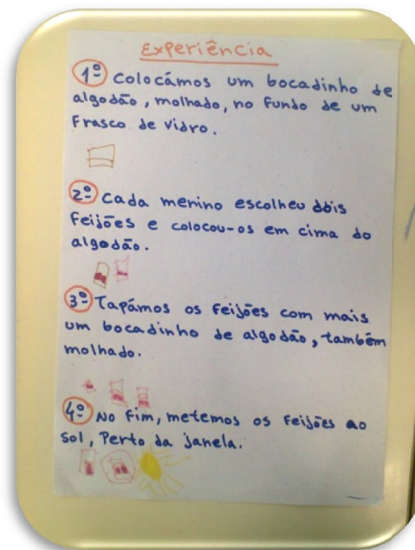 Experiência
1º Colocámos um bocadinho de
algodão, molhado, no fundo de um
frasco de vidro.
2º Cada menino escolheu dois
feijões e colocou-os em cima do
algodão.
3º Tapámos os feijões com mais
um bocadinho de algodão, também
molhado.
4º No fim, metemos os feijões ao
sol, perto da janela.